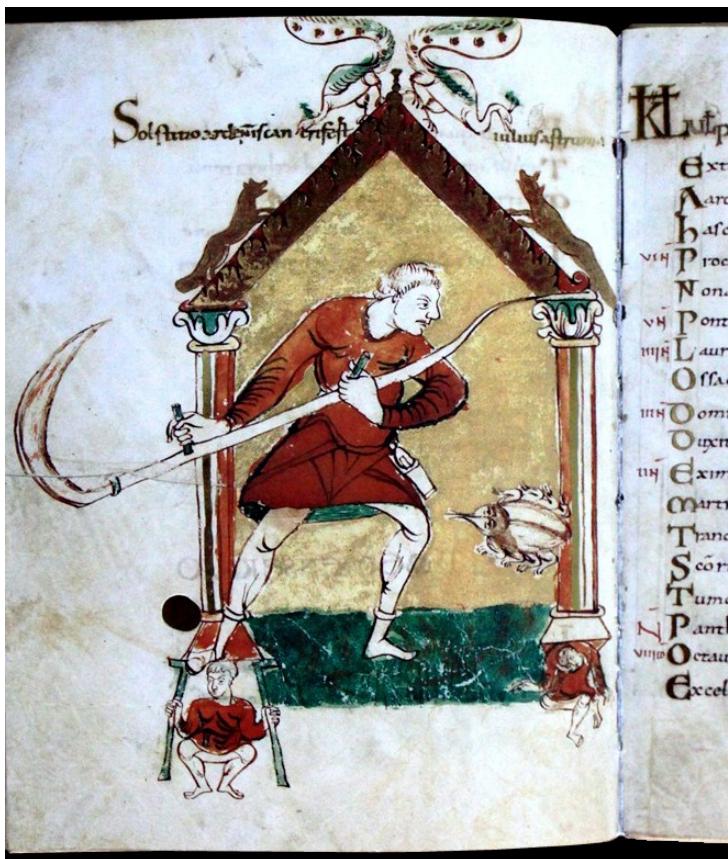 Solstitio ardentis can crifert iulius astrum
KL iul
Ext
Aar
hasc
VIII N Proc
Non
VII N Pont
IIII N Laur
Ossa
III N Dom
Dux
II N Exim
Mart
Tranc
Scor
Tum
N Pant
VIII ID Octau
Excel